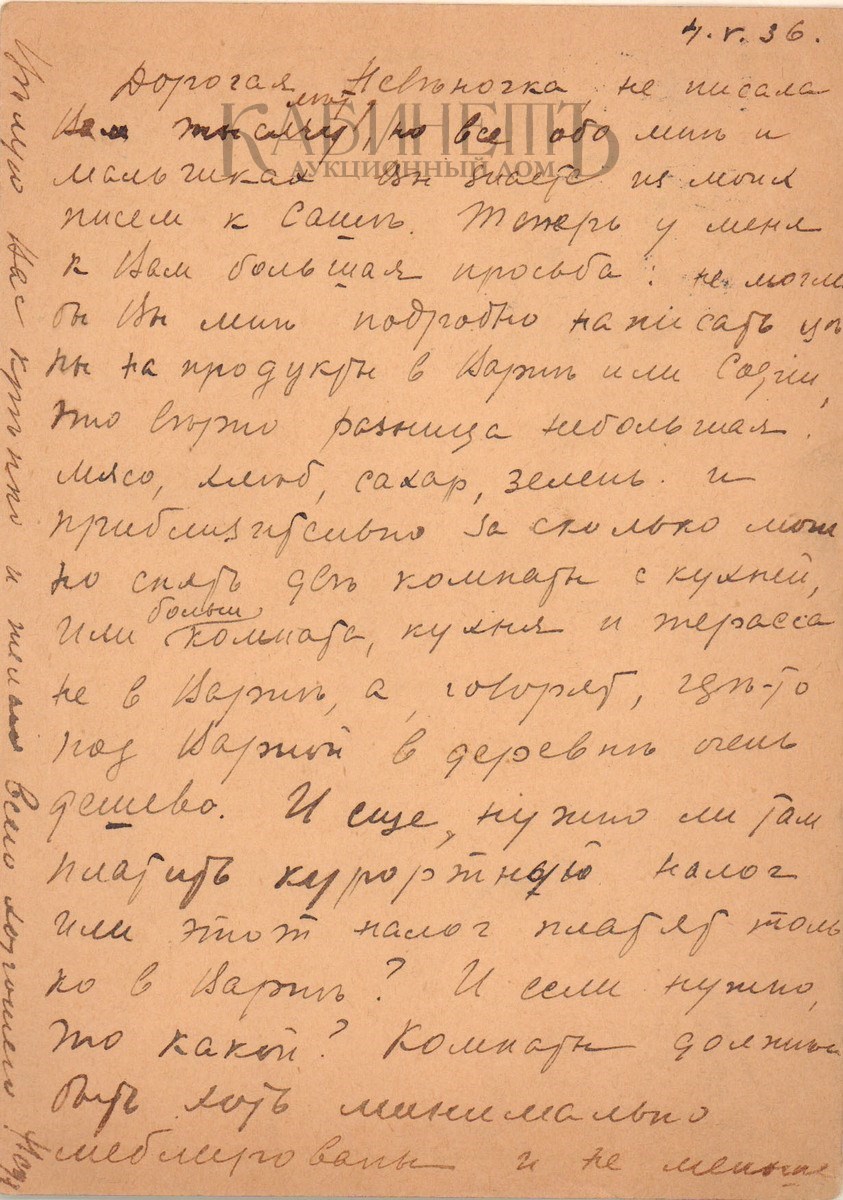 4.V.36.
Дорогая Невѣночка, не писала
Вам тысячу лѣт, но все обо мнѣ и
мальчиках Вы знаете из моих
писем к Сашѣ. Теперь у меня
к Вам большая просьба: не могли
бы Вы мнѣ подробно написать цѣ
ны на продукты в Варнѣ или Софии,
это вѣрно разница небольшая.
мясо, хлѣб, сахар, зелень. и
приблизительно за сколько мож
но снять двѣ комнаты с кухней,
или больш комната, кухня и терасса
не в Варнѣ, а, говорят, гдѣ-то
под Варной в деревнѣ очень
дешево. И еще, нужно ли там
платить курортную налог
или этот налог платят толь
ко в Варнѣ? И если нужно,
то какой? Комнаты должны
быть хоть минимально
меблированы и не меньше
Цѣлую Вас крѣпко и желаю всего хорошего!
КАБИНЕТЪ
АУКЦИОННЫЙ ДОМ